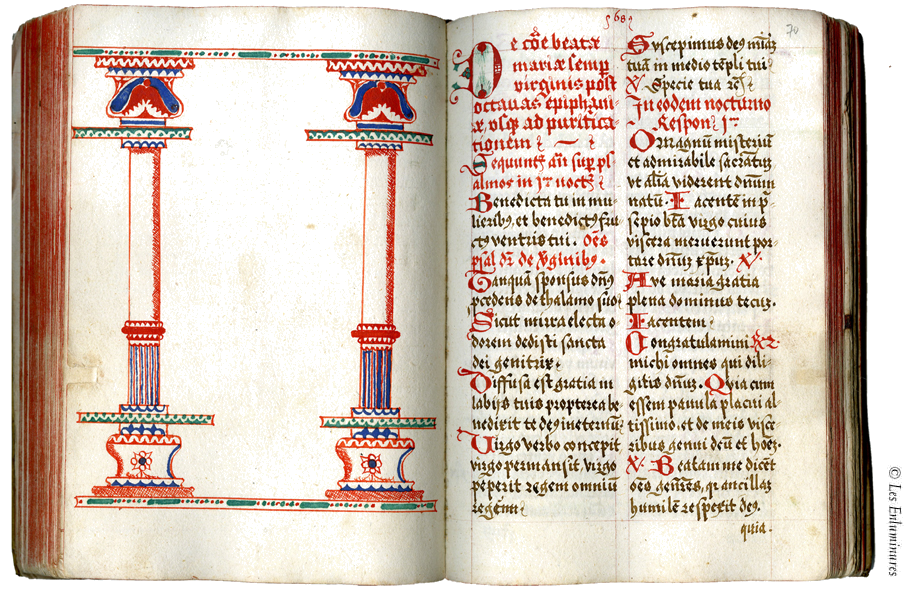 ꝭ 68 ꝭ
70
De cōe beatæ
mariæ semꝑ
virginis post
octauas epiphani
æ, vsqꝫ ad purifica
tionem
Sequuntꝛ añ sup̄ ps
almos in 1º noctꝭ
Benedicta tu in mu
lieribꝰ, et benedictꝰ fru
ctꝰ ventris tui. oēs
Tanquā sponsus dn̄s
ꝓcedens de thalamo suo
Sicut mirra electa o
dorem dedisti sancta
dei genitrix
Diffusa est gratia in
labijs tuis propterea be
nedixit te deꝰ in eternū
Virgo verbo concepit
virgo permansit virgo
peperit regem omniū
regem
Suscepimus deꝰ miām
tuā in medio tēpli tui
℣. Specie tua
In eodem nocturno
Respon 1m
O magnum misteriū
et admirabile sacrātū
vt aīalia viderent dnūm
natū. Iacentem in p̄
sepio bt̄a virgo cuius
viscera meruerunt por
tare dnūꝫ xp̄uꝫ. ℣.
Aue maria gratia
plena dominus tecuꝫ.
Iacentem
Congratulamini ℟ 2.
michi omnes qui dili
gitis dnūꝫ. Quia cum
essem paruula placui al
tissimo, et de meis visce
ribus genui deū et hoēꝫ.
℣. Beatam me dicēt
oēs gen̄res, qꝛ ancillaꝫ
humilē respexit deꝰ.
quia.
© Les Enluminures